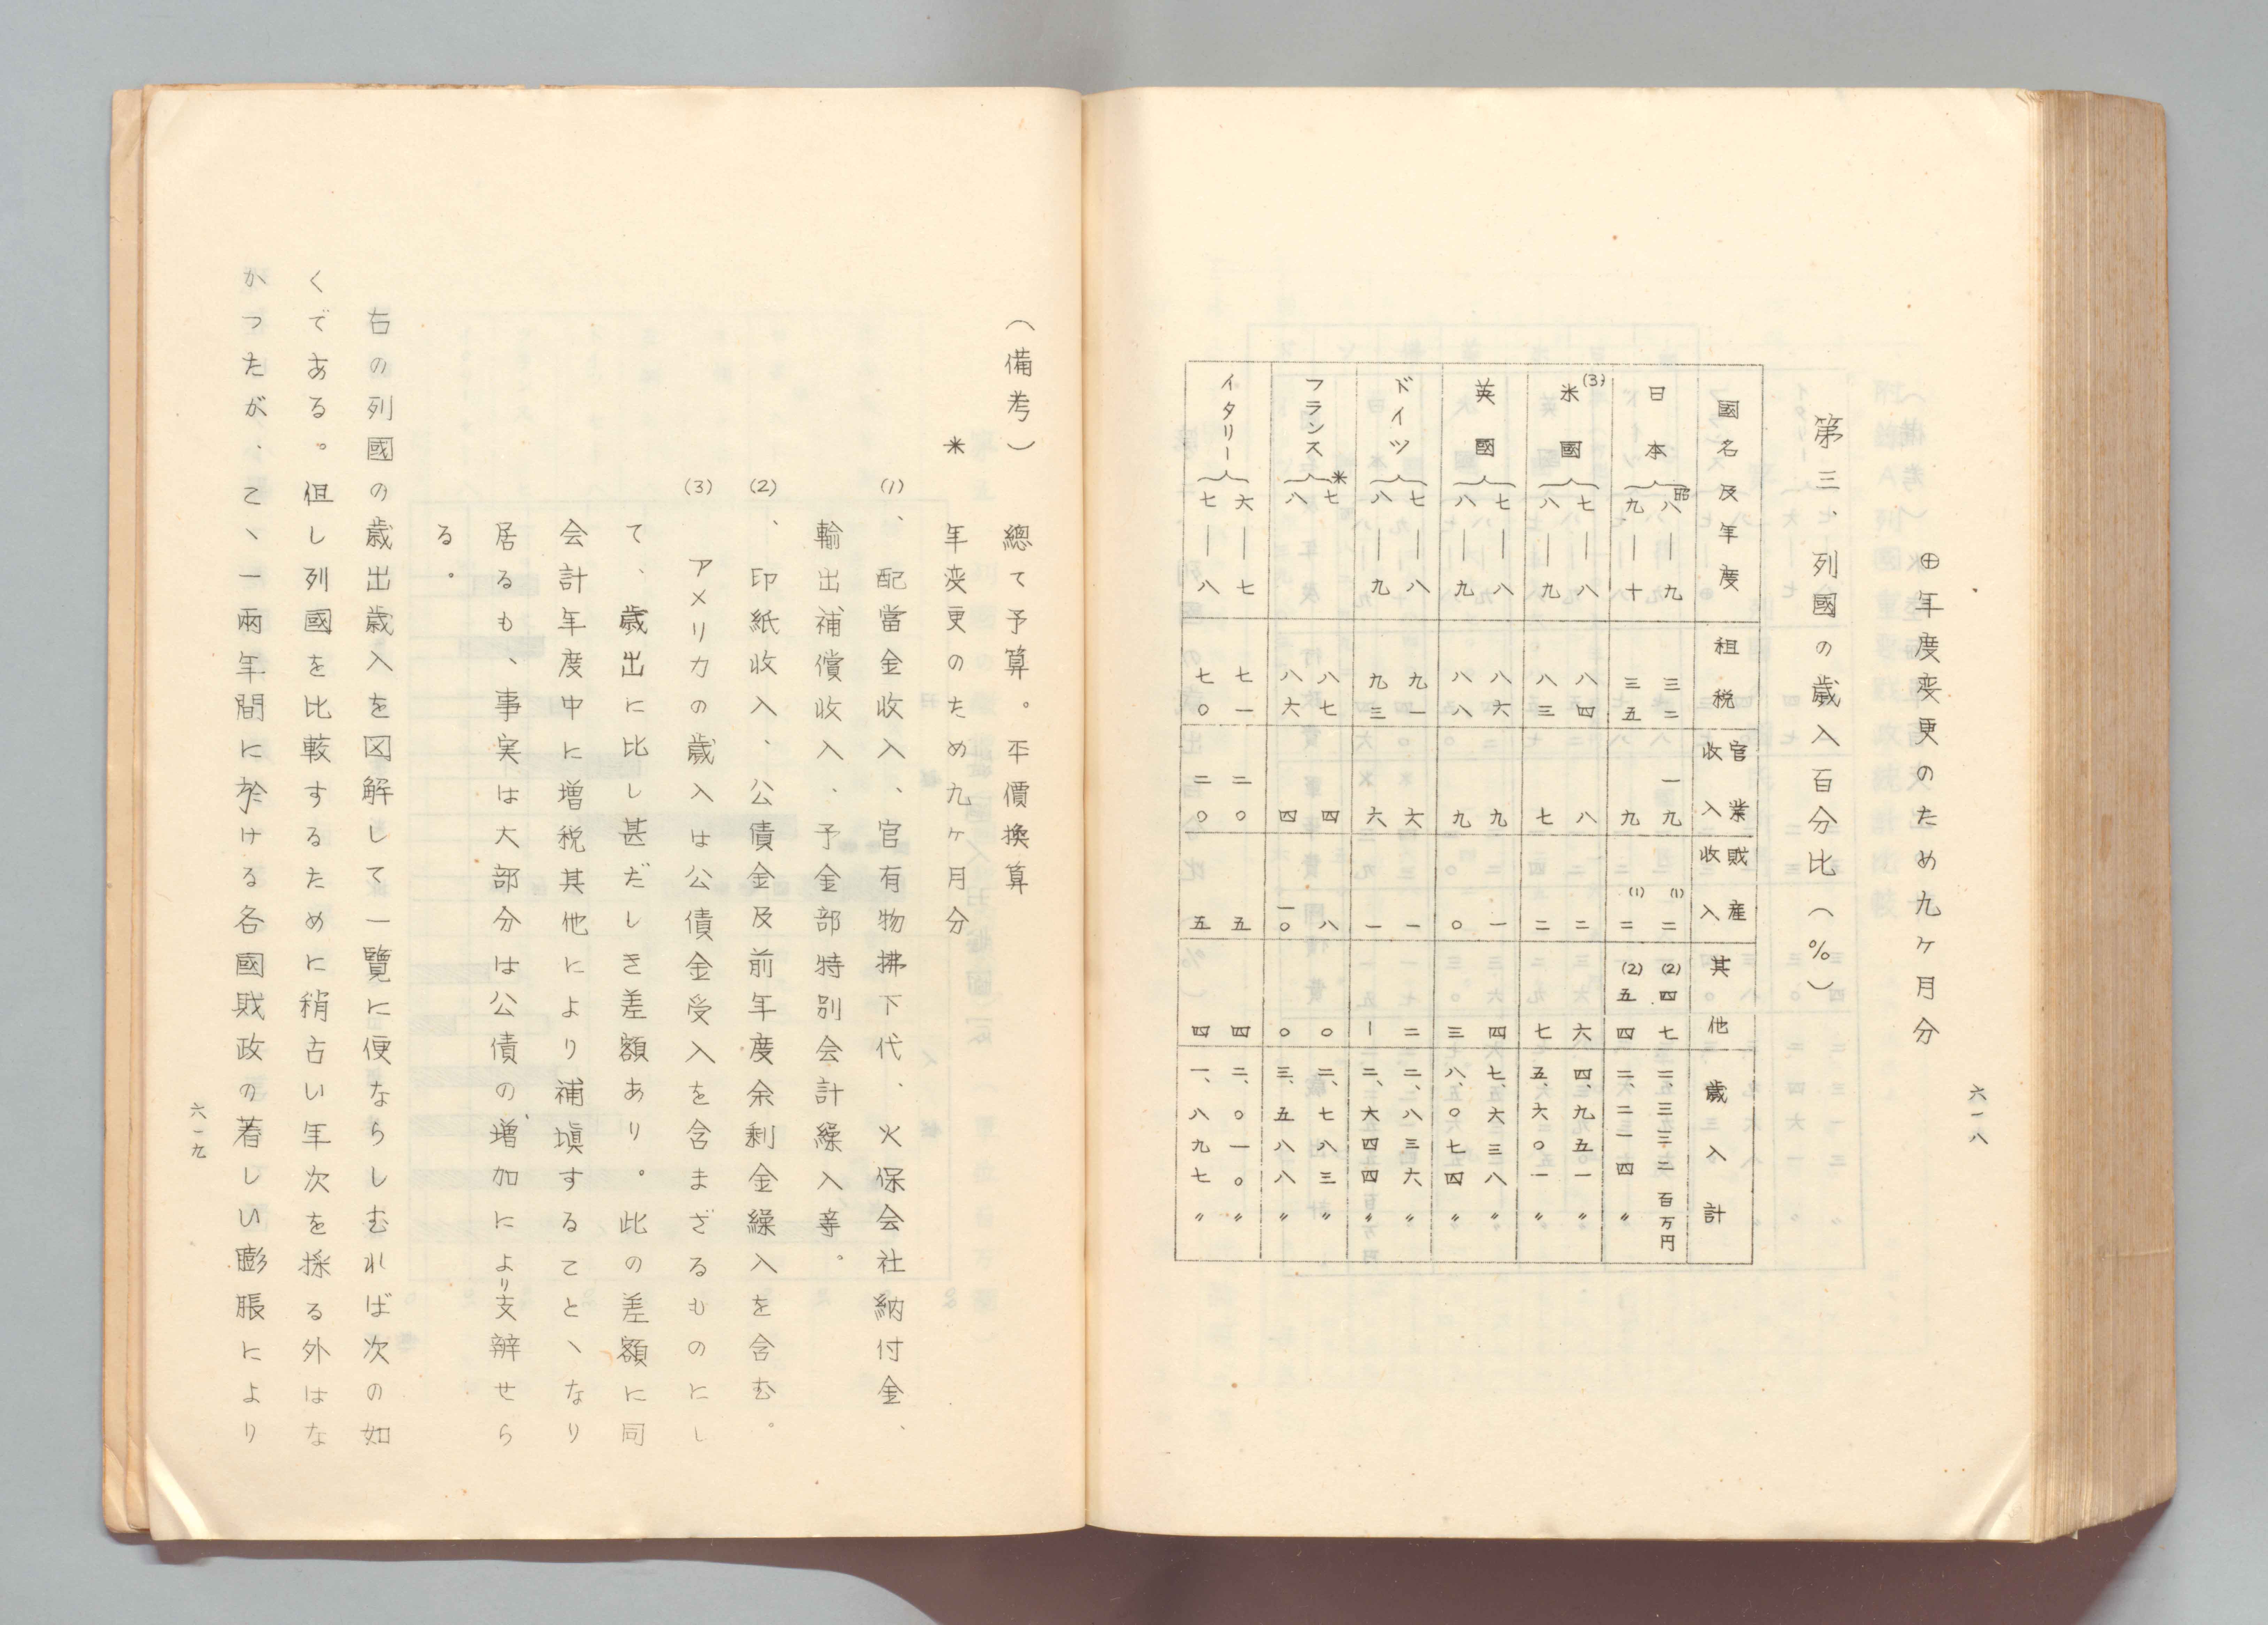 六一八
⊕年度変更のため九ヶ月分
第三、列國の歳入百分比(%)
國名及年度 租税 官業收入 財産收入 其他 歳入計
日本 昭八—九 三二 一九 (1)二 (2)四七 二、三三二百万円
九—十 三五 九 (1)二 (2)五四 二、二一四〃
(3)米國 七—八 八四 八 二 六 四、九五一〃
八—九 八三 七 二 七 五、六〇一〃
英國 七—八 八六 九 一 四 七、六三八〃
八—九 八八 九 〇 三 八、〇七四〃
ドイツ 七—八 九一 六 一 二 二、八三六〃
八—九 九三 六 一 — 二、六四四〃
フランス *七 八七 四 八 〇 二、七八三〃
八 八六 四 一〇 〇 三、五八八〃
イタリー 六—七 七一 二〇 五 四 二、〇一〇〃
七—八 七〇 二〇 五 四 一、八九七〃
(備考) 總て予算。平價換算
* 年変更のため九ヶ月分
(1)、配當金收入、官有物拂下代、火保会社納付金、
輸出補償收入、予金部特別会計繰入等。
(2)、印紙收入、公債金及前年度余剰金繰入を含む。
(3) アメリカの歳入は公債金受入を含まざるものにし
て、歳出に比し甚だしき差額あり。此の差額に同
会計年度中に増税其他により補塡することヽなり
居るも、事実は大部分は公債の増加により支辨せら
る。
右の列國の歳出歳入を図解して一覽に便ならしむれば次の如
くである。但し列國を比較するために稍古い年次を採る外はな
かつたが、こヽ一兩年間に於ける各國財政の著しい膨脹により
六一九